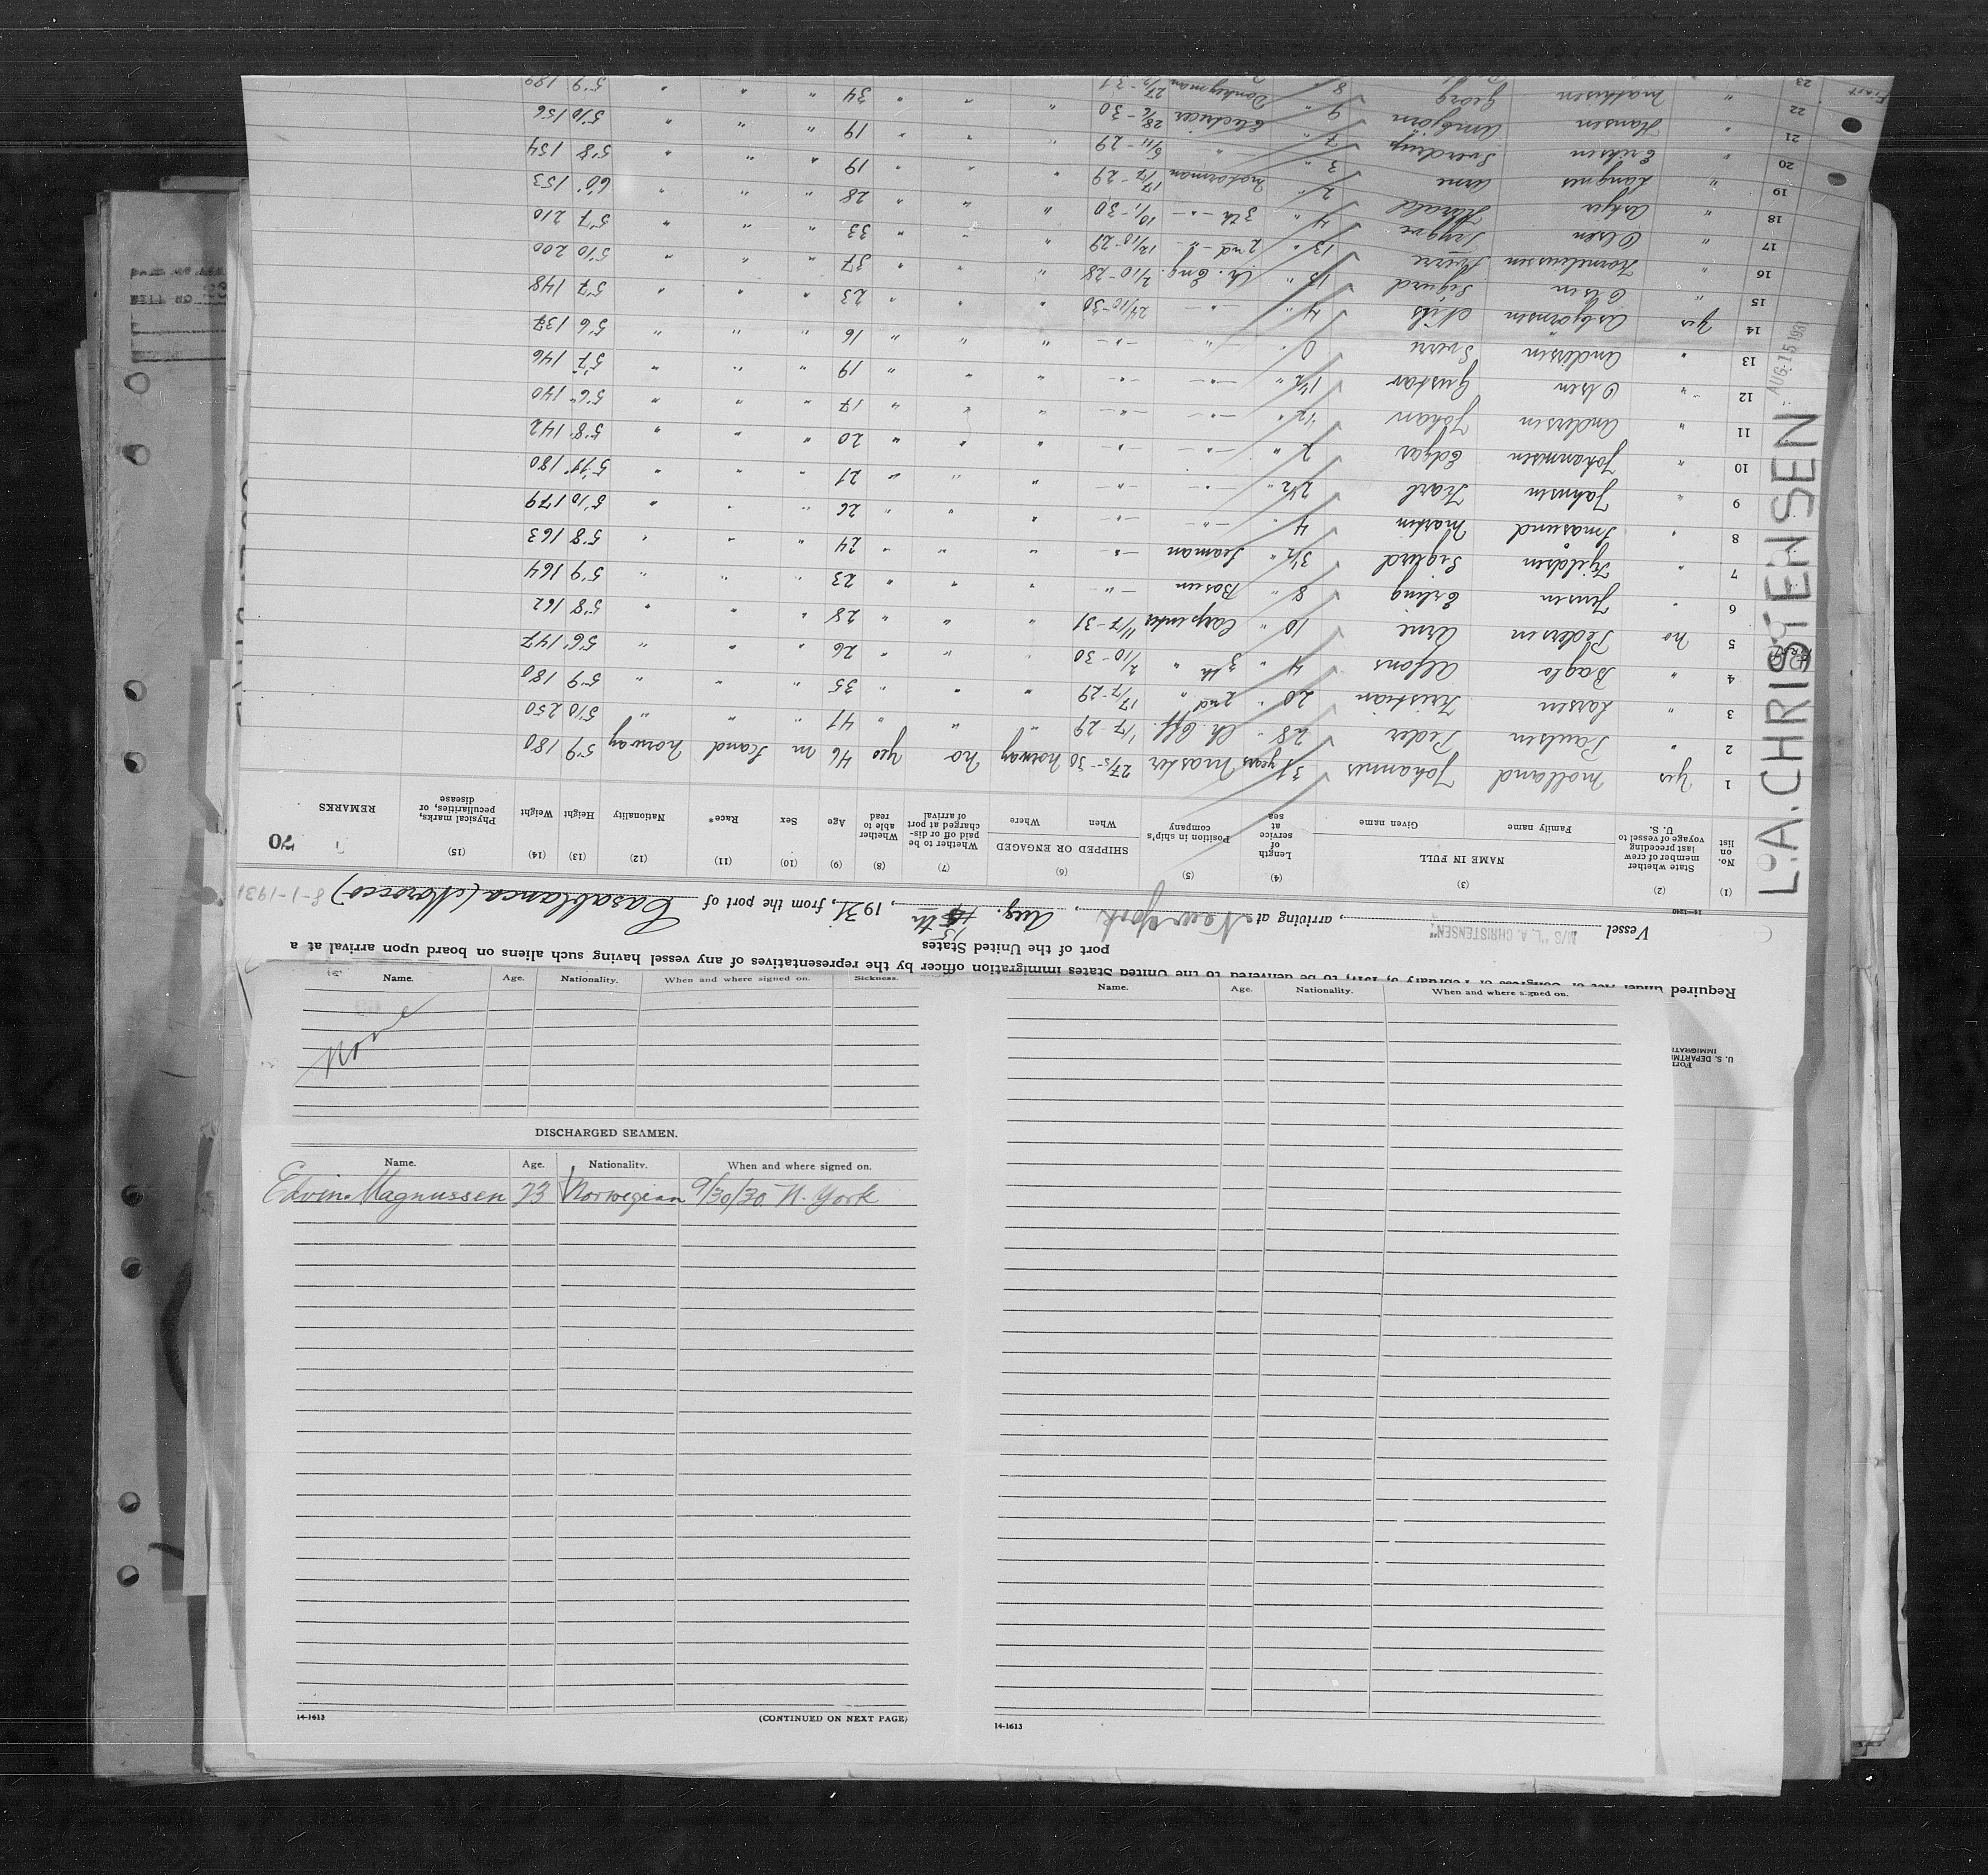 Name. Age. Nationality. When and where signed on. Sickness.
None
DISCHARGED SEAMEN.
Name. Age. Nationality. When and where signed on.
Edvin Magnussen 23 Norwegian 9/30/30 N. York
14-1613 (CONTINUED ON NEXT PAGE)
Name. Age. Nationality. When and where signed on.
14-1613
U. S. DEPARTM
IMMIGRATI
Required under Act of Congress of February 5, 1917, to be delivered to the United States immigration officer by the representatives of any vessel having such aliens on board upon arrival at a
port of the United States
Vessel M/S "L. A. CHRISTENSEN", arriving at New York, Aug. 15th, 1931, from the port of Casablanca (Morocco)
8-1-1931
14-1240
L.A. CHRISTENSEN
AUG 15 1931
70
(1) (2) (3) (4) (5) (6) (7) (8) (9) (10) (11) (12) (13) (14) (15)
No. on list State whether member of crew last preceding voyage of vessel to U. S. NAME IN FULL Family name Given name Length of service at sea Position in ship's company SHIPPED OR ENGAGED When Where Whether to be paid off or discharged at port of arrival Whether able to read Age Sex Race* Nationality Height Weight Physical marks, peculiarities, or disease REMARKS
1 Yes Molland Johannes 31 years Master 27/5-30 Norway no yes 46 m Scand Norway 5'9 180
2 " Paulsen Peder 28 " Ch. Off. 1/7-29 " " " 47 " " " 5'10 250
3 " Larsen Kristian 20 " 2nd " 17/7-29 " " " 35 " " " 5'9 180
4 " Baglo Alfons 4 " 3th " 2/10-30 " " " 26 " " " 5'6" 147
5 no Pedersen Arne 10 " Carpenter 11/7-31 " " " 28 " " " 5'8" 162
6 " Jensen Erling 8 " Bosun -"- " " " 23 " " " 5'9 164
7 " Kjeldsen Sigurd 3½ " Seaman -"- " " " 24 " " " 5'8 163
8 " Smaasund Martin 4 " -"- -"- " " " 26 " " " 5'10 179
9 " Jahnsen Karl 2½ " -"- -"- " " " 21 " " " 5'11" 180
10 " Johannesen Edgar 2 " -"- -"- " " " 20 " " " 5'8" 142
11 " Andersen Johan ½ " -"- -"- " " " 17 " " " 5'6" 140
12 " Olsen Gustav 1½ " -"- -"- " " " 19 " " " 5'7" 146
13 " Andersen Sverre 0 " -"- -"- " " " 16 " " " 5'6 137
14 Yes Asbjørnsen Nils 4 " -"- 24/10-30 " " " 23 " " " 5'7 148
15 " Olsen Sigurd 15 " Ch. Eng. 2/10-28 " " " 37 " " " 5'10 200
16 " Korneliussen Sverre 13 " 2nd -"- 12/10-29 " " " 33 " " " 5'7 210
17 " Olsen Yngve 4 " 3th -"- 10/1-30 " " " 28 " " " 6'0" 153
18 " Asker Harald 2 " Motorman 17/7-29 " " " 19 " " " 5'8 154
19 " Langnes Arne 3 " " 5/11-29 " " " 19 " " " 5'10 156
20 " Eriksen Sverdrup 7 " Electrician 28/6-30 " " " 34 " " " 5'9 189
21 " Hansen Arnbjørn 9 " Donkeyman 27/2-31
22 " Mathisen Georg 8 "
23